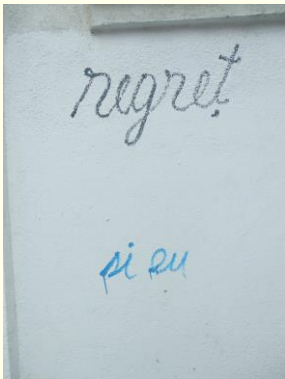 regreț
și eu